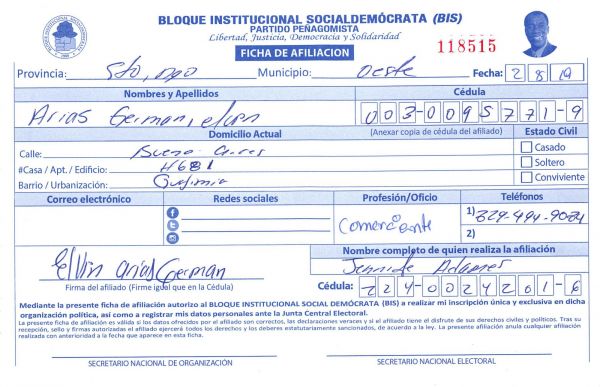 BLOQUE INSTITUCIONAL SOCIALDEMÓCRATA (BIS)
PARTIDO PEÑAGOMISTA
Libertad, Justicia, Democracia y Solidaridad
FICHA DE AFILIACION
118515
Provincia: Sto, Dgo Municipio: Oeste Fecha: 2 8 19
Nombres y Apellidos Cédula
Arias German, elvin 003-0095771-9
Domicilio Actual (Anexar copia de cédula del afiliado) Estado Civil
Calle: Buenos Aires Casado
#Casa / Apt. / Edificio: #681 Soltero
Barrio / Urbanización: Conviviente
Correo electrónico Redes sociales Profesión/Oficio Teléfonos
Comerciante 1) 829-494-9084
2)
Nombre completo de quien realiza la afiliación
Elvin arias German Adames
Firma del afiliado (Firme igual que en la Cédula) Cédula: 224-0024201-6
Mediante la presente ficha de afiliación autorizo al BLOQUE INSTITUCIONAL SOCIAL DEMÓCRATA (BIS) a realizar mi inscripción única y exclusiva en dicha
organización política, así como a registrar mis datos personales ante la Junta Central Electoral.
La presente ficha de afiliación es válida si los datos ofrecidos por el afiliado son correctos, las declaraciones veraces y si el afiliado tiene el disfrute de sus derechos civiles y políticos. Tras su
recepción, sello y firmas autorizadas el afiliado ejercerá todos los derechos y los deberes estatutariamente sancionados, de acuerdo a la ley. La presente afiliación anula cualquier afiliación
realizada con anterioridad a la fecha que aparece en esta ficha.
SECRETARIO NACIONAL DE ORGANIZACIÓN SECRETARIO NACIONAL ELECTORAL